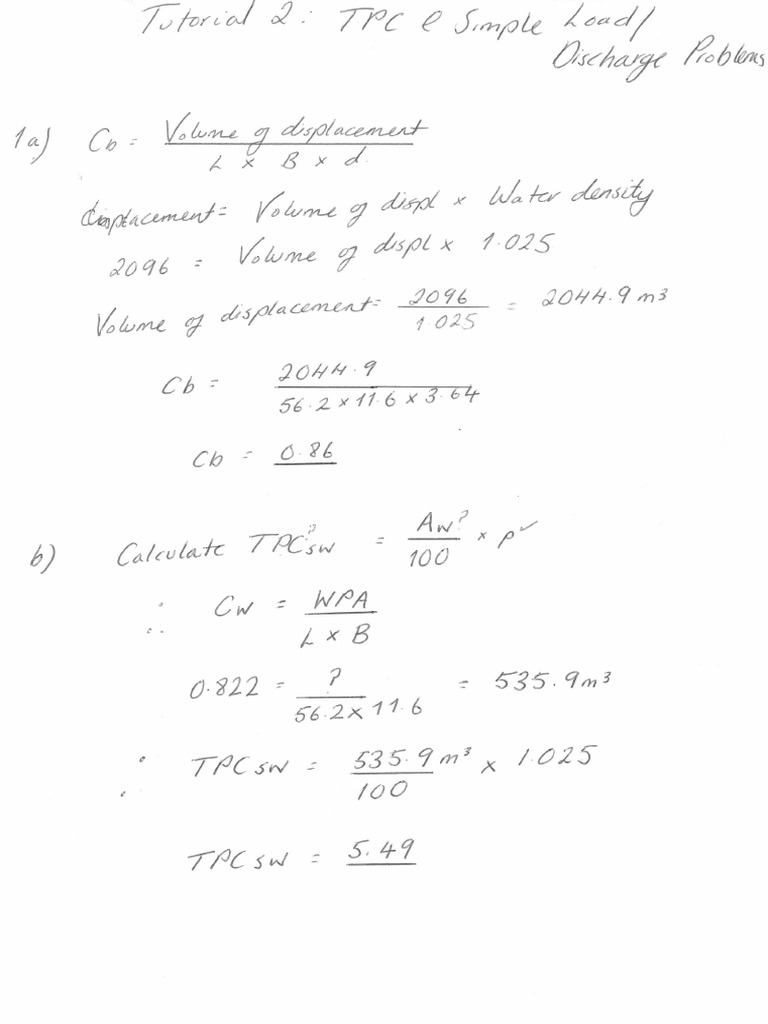 Tutorial 2: TPC & Simple Load/
Discharge Problems
1a) Cb = Volume of displacement
L x B x d.
displacement = Volume of displ x Water density
2096 = Volume of displ x 1.025
Volume of displacement = 2096 = 2044.9 m³
1.025
Cb = 2044.9
56.2 x 11.6 x 3.64
Cb = 0.86
b) Calculate TPCsw? = Aw? x ρ ✓
100
∴ Cw = WPA
L x B
0.822 = ? = 535.9 m³
56.2 x 11.6
∴ TPCsw = 535.9 m³ x 1.025
100
TPCsw = 5.49